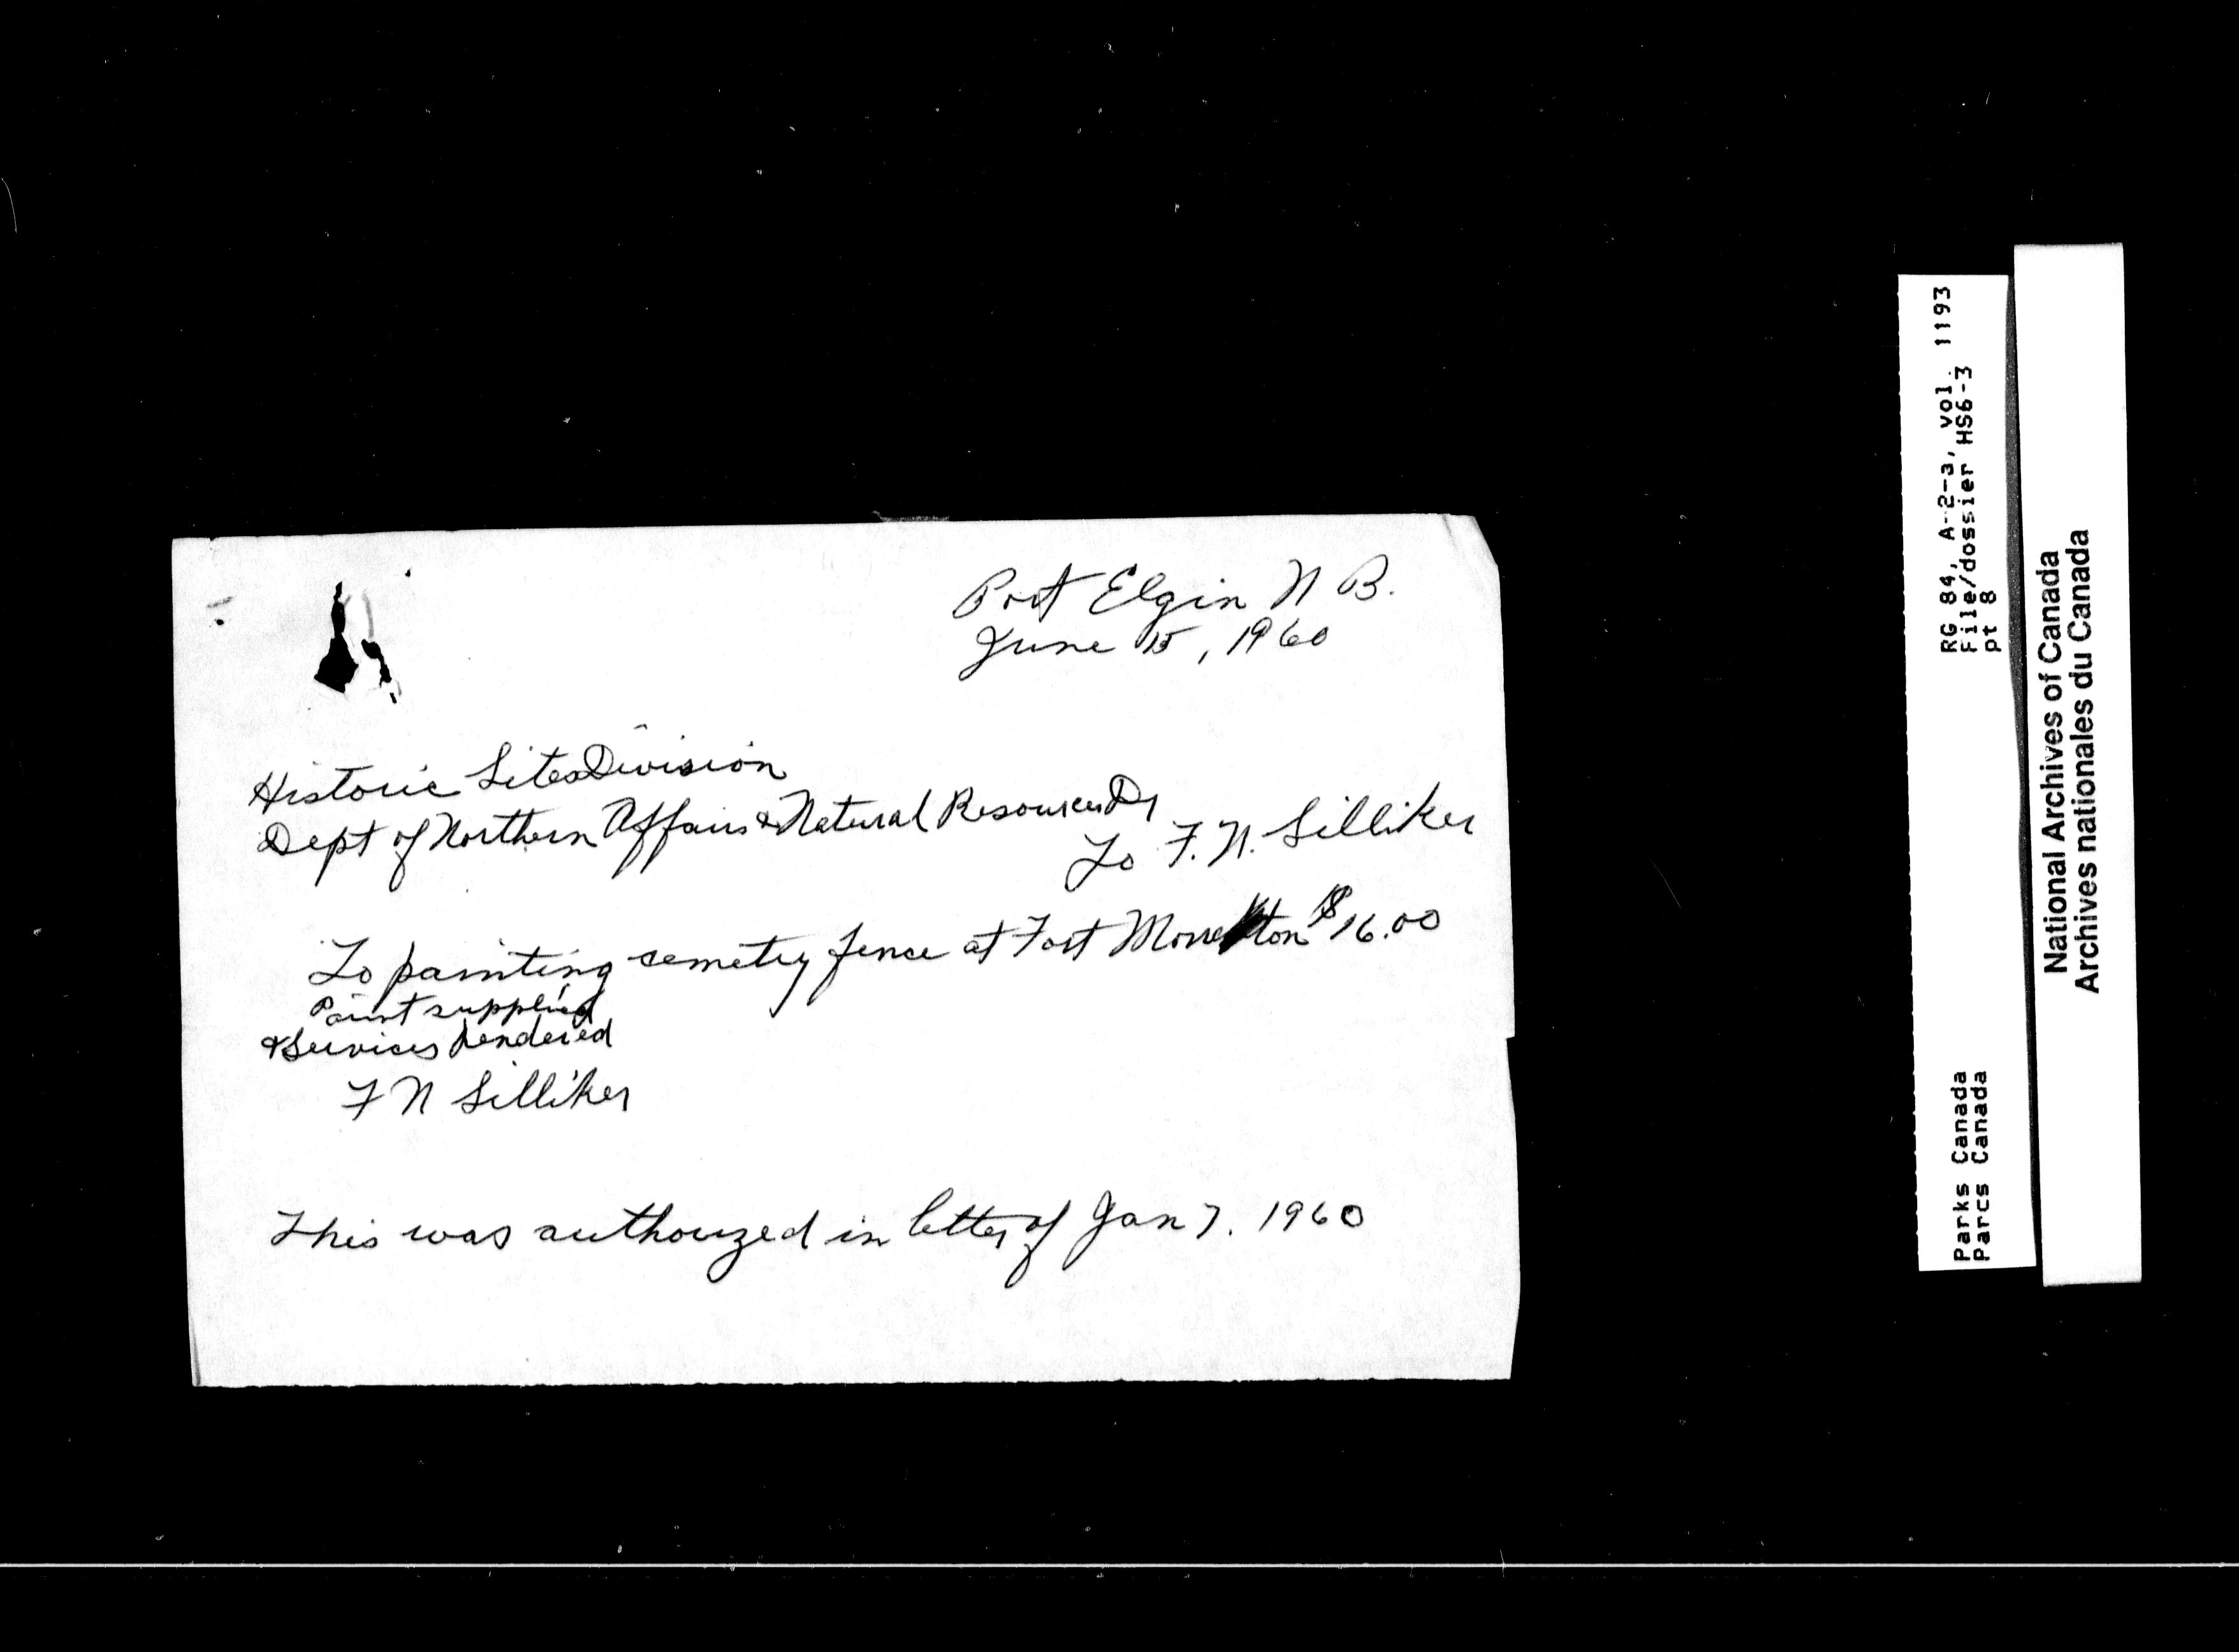 Port Elgin N B.
June 15, 1960
Historic Sites Division
Dept of Northern Affairs & Natural Resources Dr
To F. N. Silliker
To painting cemetry fence at Fort $16.00
Paint supplied
& Services Rendered
F N Silliker
This was authorized in letter of Jan 7. 1960
RG 84, A-2-a, vol. 1193
File/dossier HS6-3
pt 8
Parks Canada
Parcs Canada
National Archives of Canada
Archives nationales du Canada